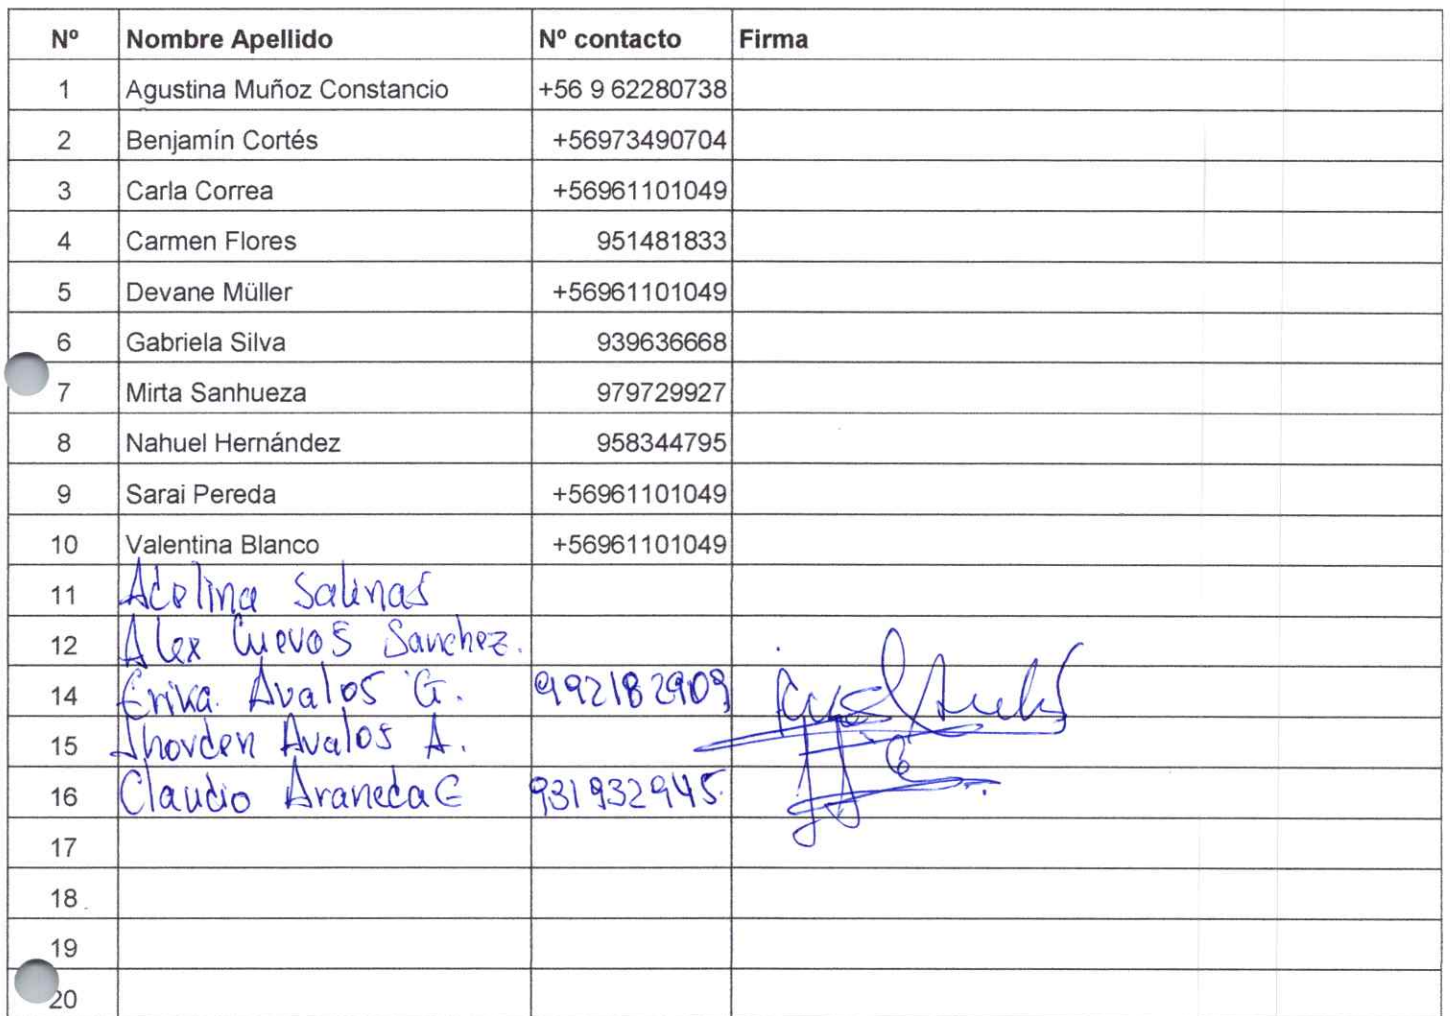 Nº Nombre Apellido Nº contacto Firma
1 Agustina Muñoz Constancio +56 9 62280738
2 Benjamín Cortés +56973490704
3 Carla Correa +56961101049
4 Carmen Flores 951481833
5 Devane Müller +56961101049
6 Gabriela Silva 939636668
7 Mirta Sanhueza 979729927
8 Nahuel Hernández 958344795
9 Sarai Pereda +56961101049
10 Valentina Blanco +56961101049
11 Adelina Salinas
12 Alex Cuevas Sanchez.
14 Erika Avalos G. 992182909
15 Jhorden Avalos A.
16 Claudio Araneda C 931932945
17
18
19
20